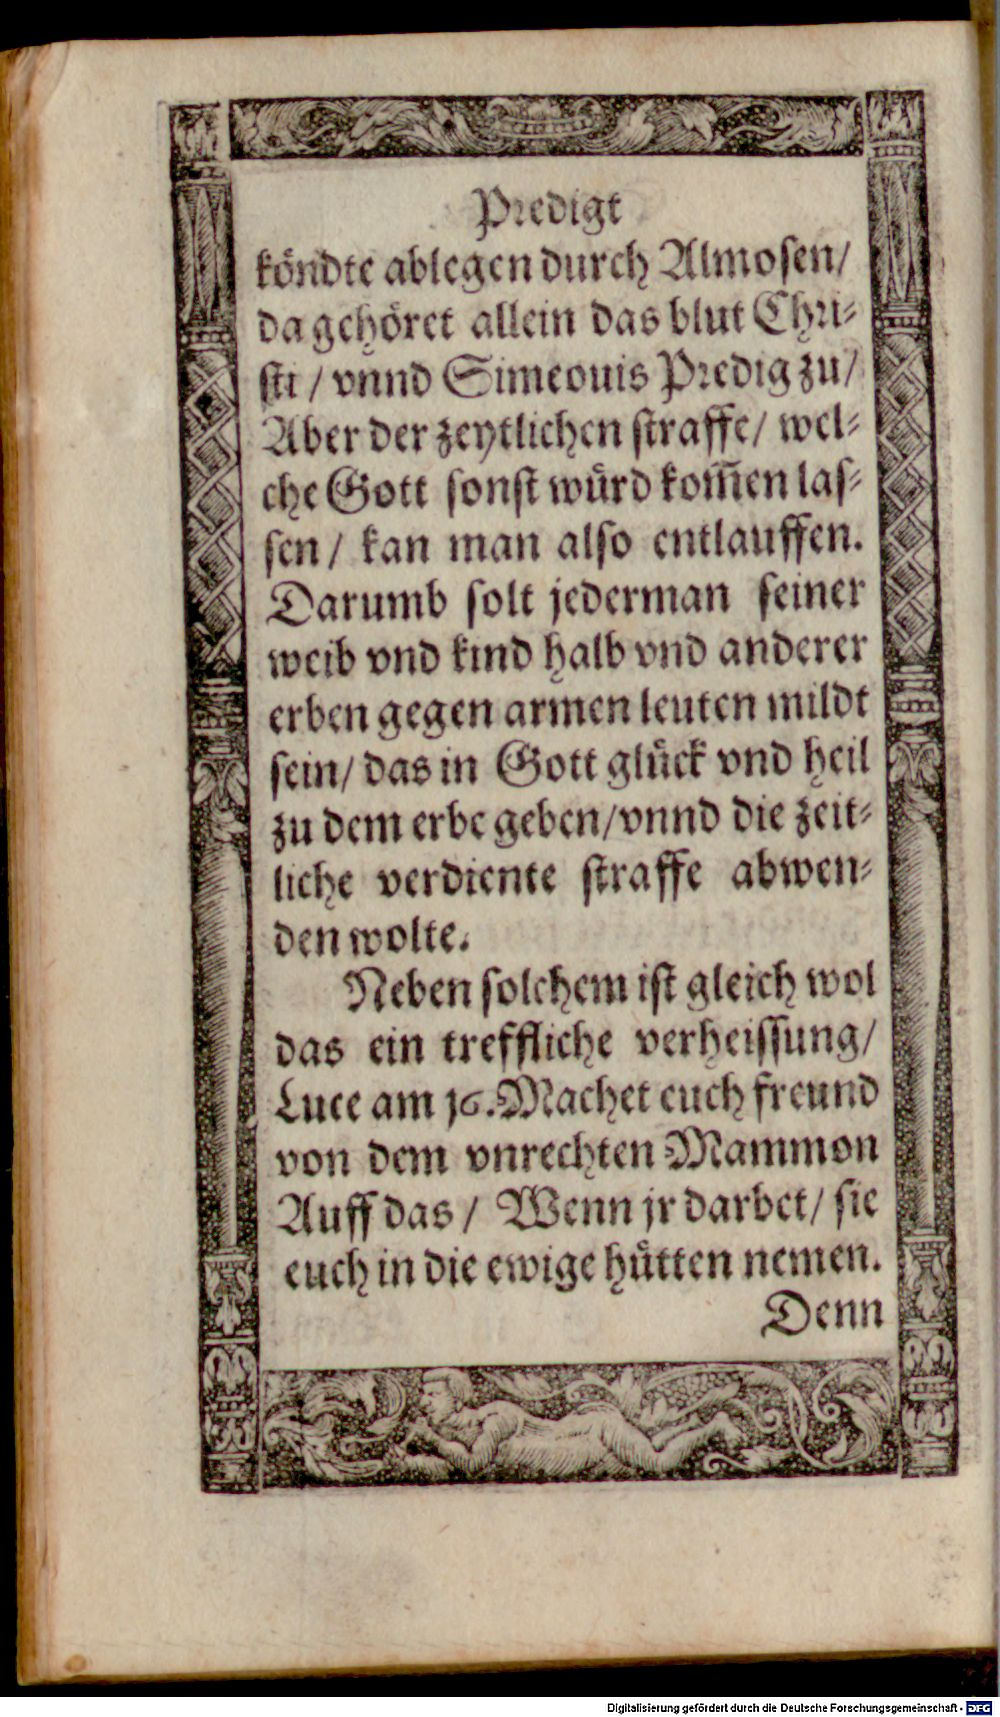 Predigt
köndte ablegen durch Almosen/
da gehöret allein das blut Chri-
sti / vnnd Simeouis Predig zu/
Aber der zeytlichen straffe/ wel-
che Gott sonst würd kom̃en las-
sen / kan man also entlauffen.
Darumb solt jederman seiner
weib vnd kind halb vnd anderer
erben gegen armen leuten mildt
sein/ das in Gott glück vnd heil
zu dem erbe geben/vnnd die zeit-
liche verdiente straffe abwen-
den wolte.
Neben solchem ist gleich wol
das ein treffliche verheissung/
Luce am 16. Machet euch freund
von dem vnrechten Mammon
Auff das / Wenn jr darbet/ sie
euch in die ewige hütten nemen.
Denn
Digitalisierung gefördert durch die Deutsche Forschungsgemeinschaft - DFG